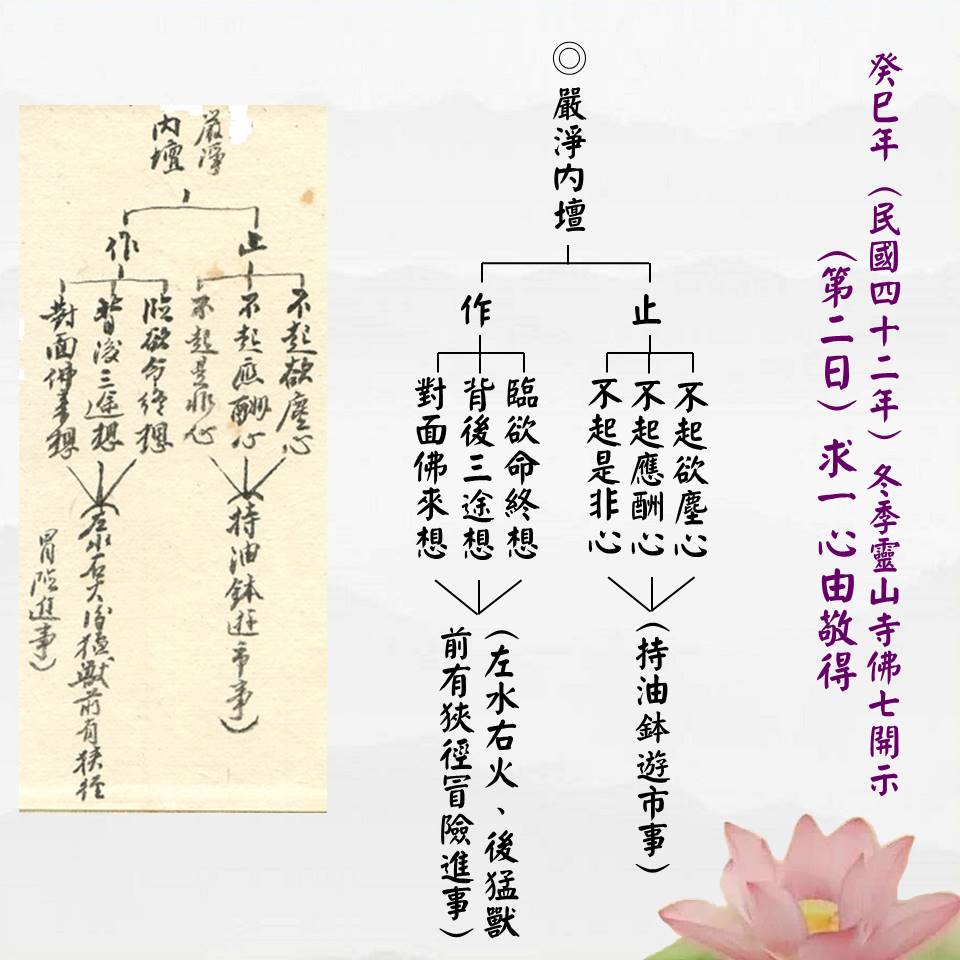 癸巳年（民國四十二年）冬季靈山寺佛七開示
（第二日）求一心由敬得
◎嚴淨內壇
止
不起欲塵心
不起應酬心
不起是非心
（持油鉢遊市事）
作
臨欲命終想
背後三途想
對面佛來想
（左水右火、後猛獸
前有狹徑冒險進事）
嚴淨
內壇
止
不起欲塵心
不起應酬心
不起是非心
（持油鉢遊市事）
作
臨欲命終想
背後三途想
對面佛來想
（左水右火後猛獸前有狹徑
冒險進事）